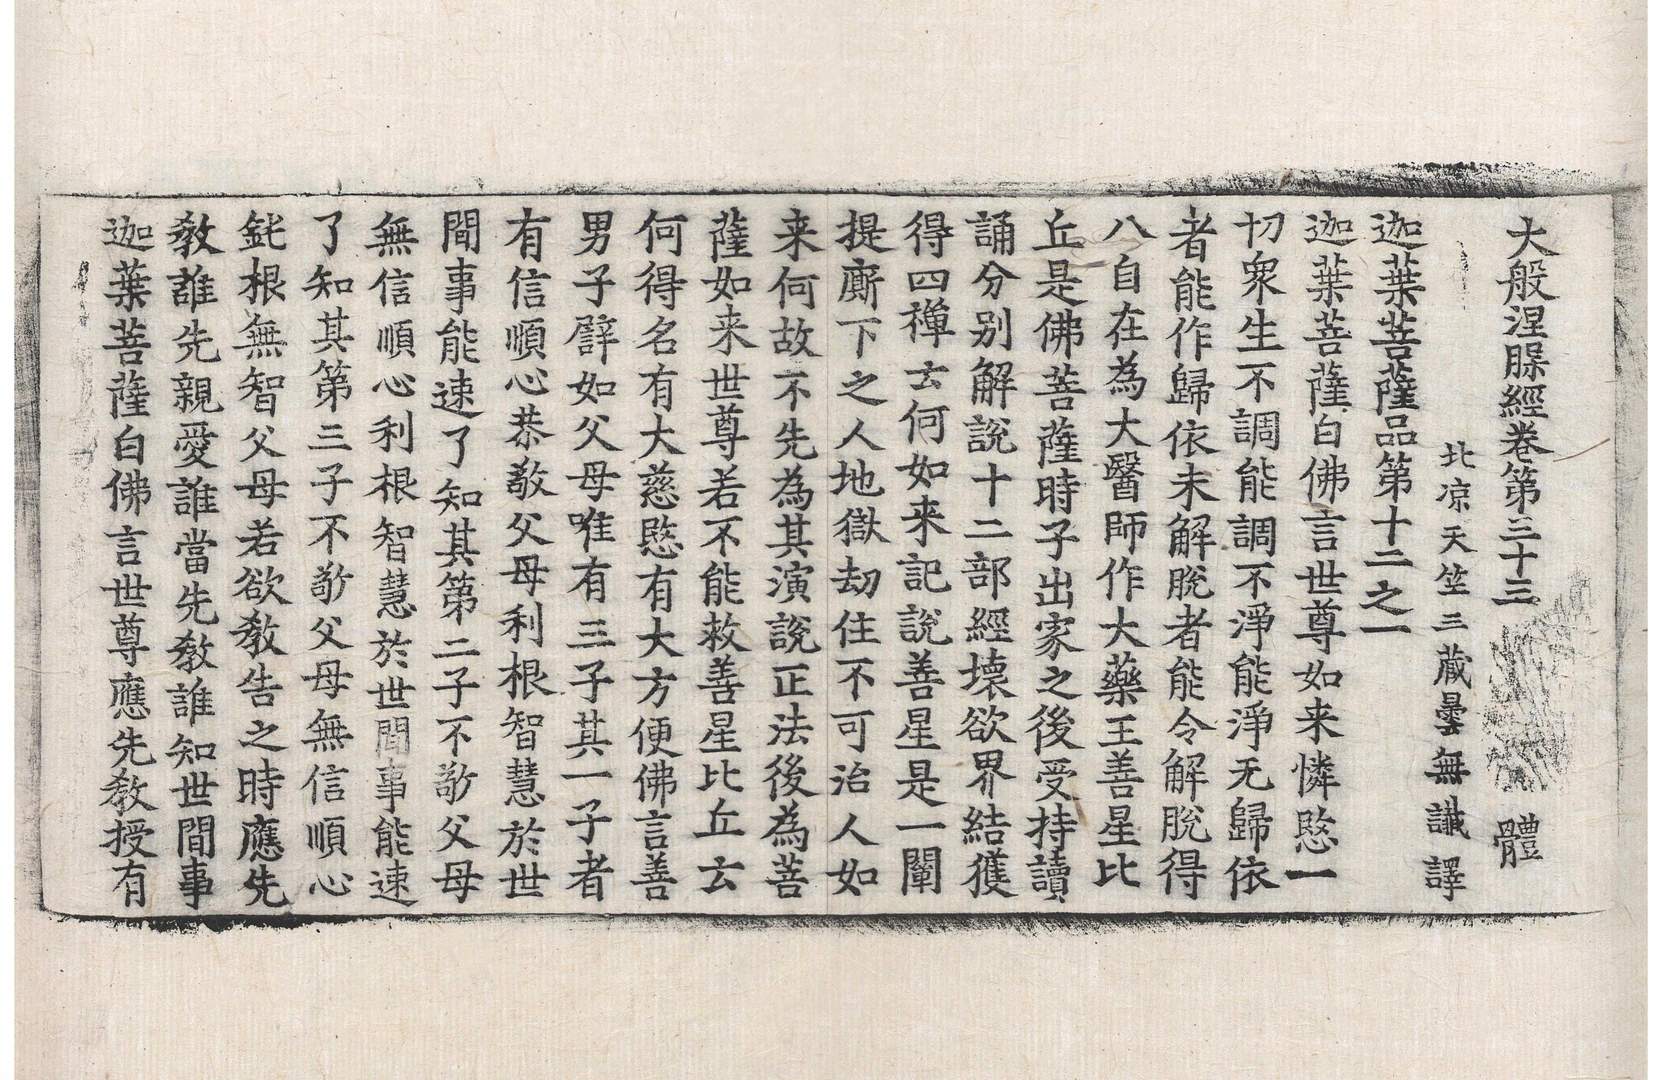 大般涅槃經卷第三十三　體
北涼天竺三藏曇無讖譯
迦葉菩薩品第十二之一
迦葉菩薩白佛言世尊如来憐愍一
切衆生不調能調不淨能淨无歸依
者能作歸依未解脫者能令解脫得
八自在為大醫師作大藥王善星比
丘是佛菩薩時子出家之後受持讀
誦分別解說十二部經壞欲界結獲
得四禪云何如来記說善星是一闡
提廝下之人地獄劫住不可治人如
来何故不先為其演說正法後為菩
薩如来世尊若不能救善星比丘云
何得名有大慈愍有大方便佛言善
男子譬如父母唯有三子其一子者
有信順心恭敬父母利根智慧於世
間事能速了知其第二子不敬父母
無信順心利根智慧於世間事能速
了知其第三子不敬父母無信順心
鈍根無智父母若欲教告之時應先
教誰先親愛誰當先教誰知世間事
迦葉菩薩白佛言世尊應先教授有